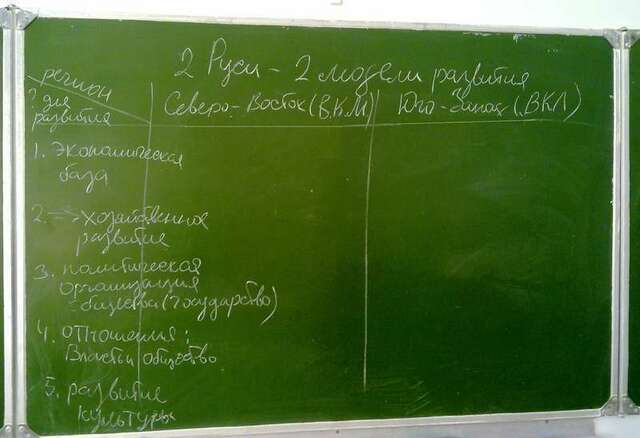 2 Руси - 2 модели развития
регион
? для
развития
Северо-Восток (В.К.М) Юго-Запад (ВКЛ)
1. Экономическая
база
2 → хозяйственное
развитие
3. политическая
организация
общества (государство)
4. отношения:
Власть и общество
5. развитие
культуры